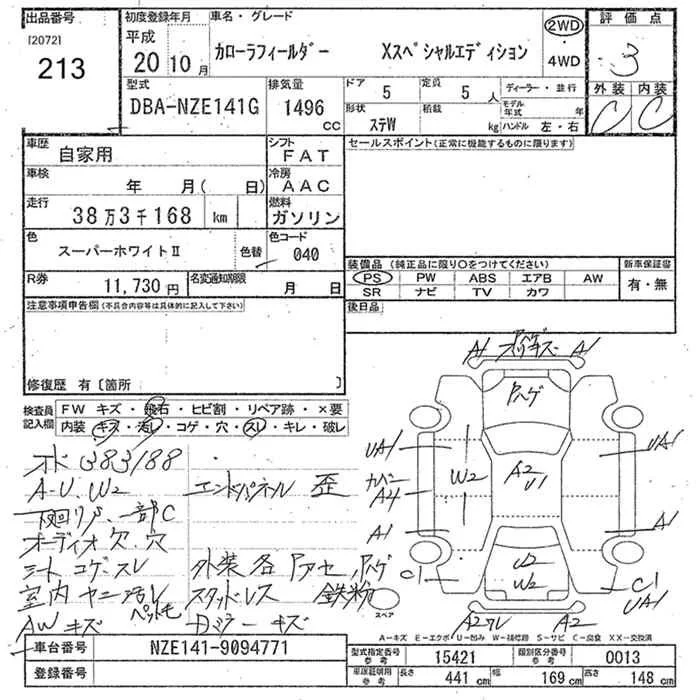 出品番号 初度登録年月 車名・グレード 評価点
[2072]
213
平成 20 10月 カローラフィールダー Xスペシャルエディション 2WD・4WD 3
型式 排気量 ドア 定員 ディーラー・並行 外装 内装
DBA-NZE141G 1496 CC 5 5人 C C
形状 積載 モデル年式 年
ステW kg ハンドル 左・右
車歴 自家用 シフト FAT セールスポイント(正常に機能するものに限ります)
車検 年 月( 日) 冷房 AAC
走行 38万3千168 km 燃料 ガソリン
色 スーパーホワイトⅡ 色替 色コード 040
装備品 (純正品に限り○をつけてください) 新車保証書
R券 11,730円 名変通知期限 月 日 PS PW ABS エアB AW 有・無
SR ナビ TV カワ
注意事項申告欄(不具合内容等は具体的に記入して下さい) 後日品
修復歴 有〔箇所 〕
検査員記入欄 FW キズ・飛石・ヒビ割・リペア跡・×要
内装・キズ・汚レ・コゲ・穴・スレ・キレ・破レ
オド 383188
A-U.W2 エンドパネル 歪
下回リサ.一部C
オーディオ欠.穴
シートコゲ.スレ 外装各
室内ヤニ汚レ スタッドレス 鉄粉
ペットモ
AWキズ キズ
A1 A1
ハゲ
UA1 UA1
W2 A2 U1
カバー A4
A1 A1
U2
W2
C1 C1
UA1
スペア A2 A2
A-キズ E-エクボ U-凹み W-補修跡 S-サビ C-腐食 XX-交換済
車台番号 NZE141-9094771 型式指定番号 参考 15421 類別区分番号 参考 0013
登録番号 車庫証明用 参考 長さ 441cm 幅 169cm 高さ 148cm